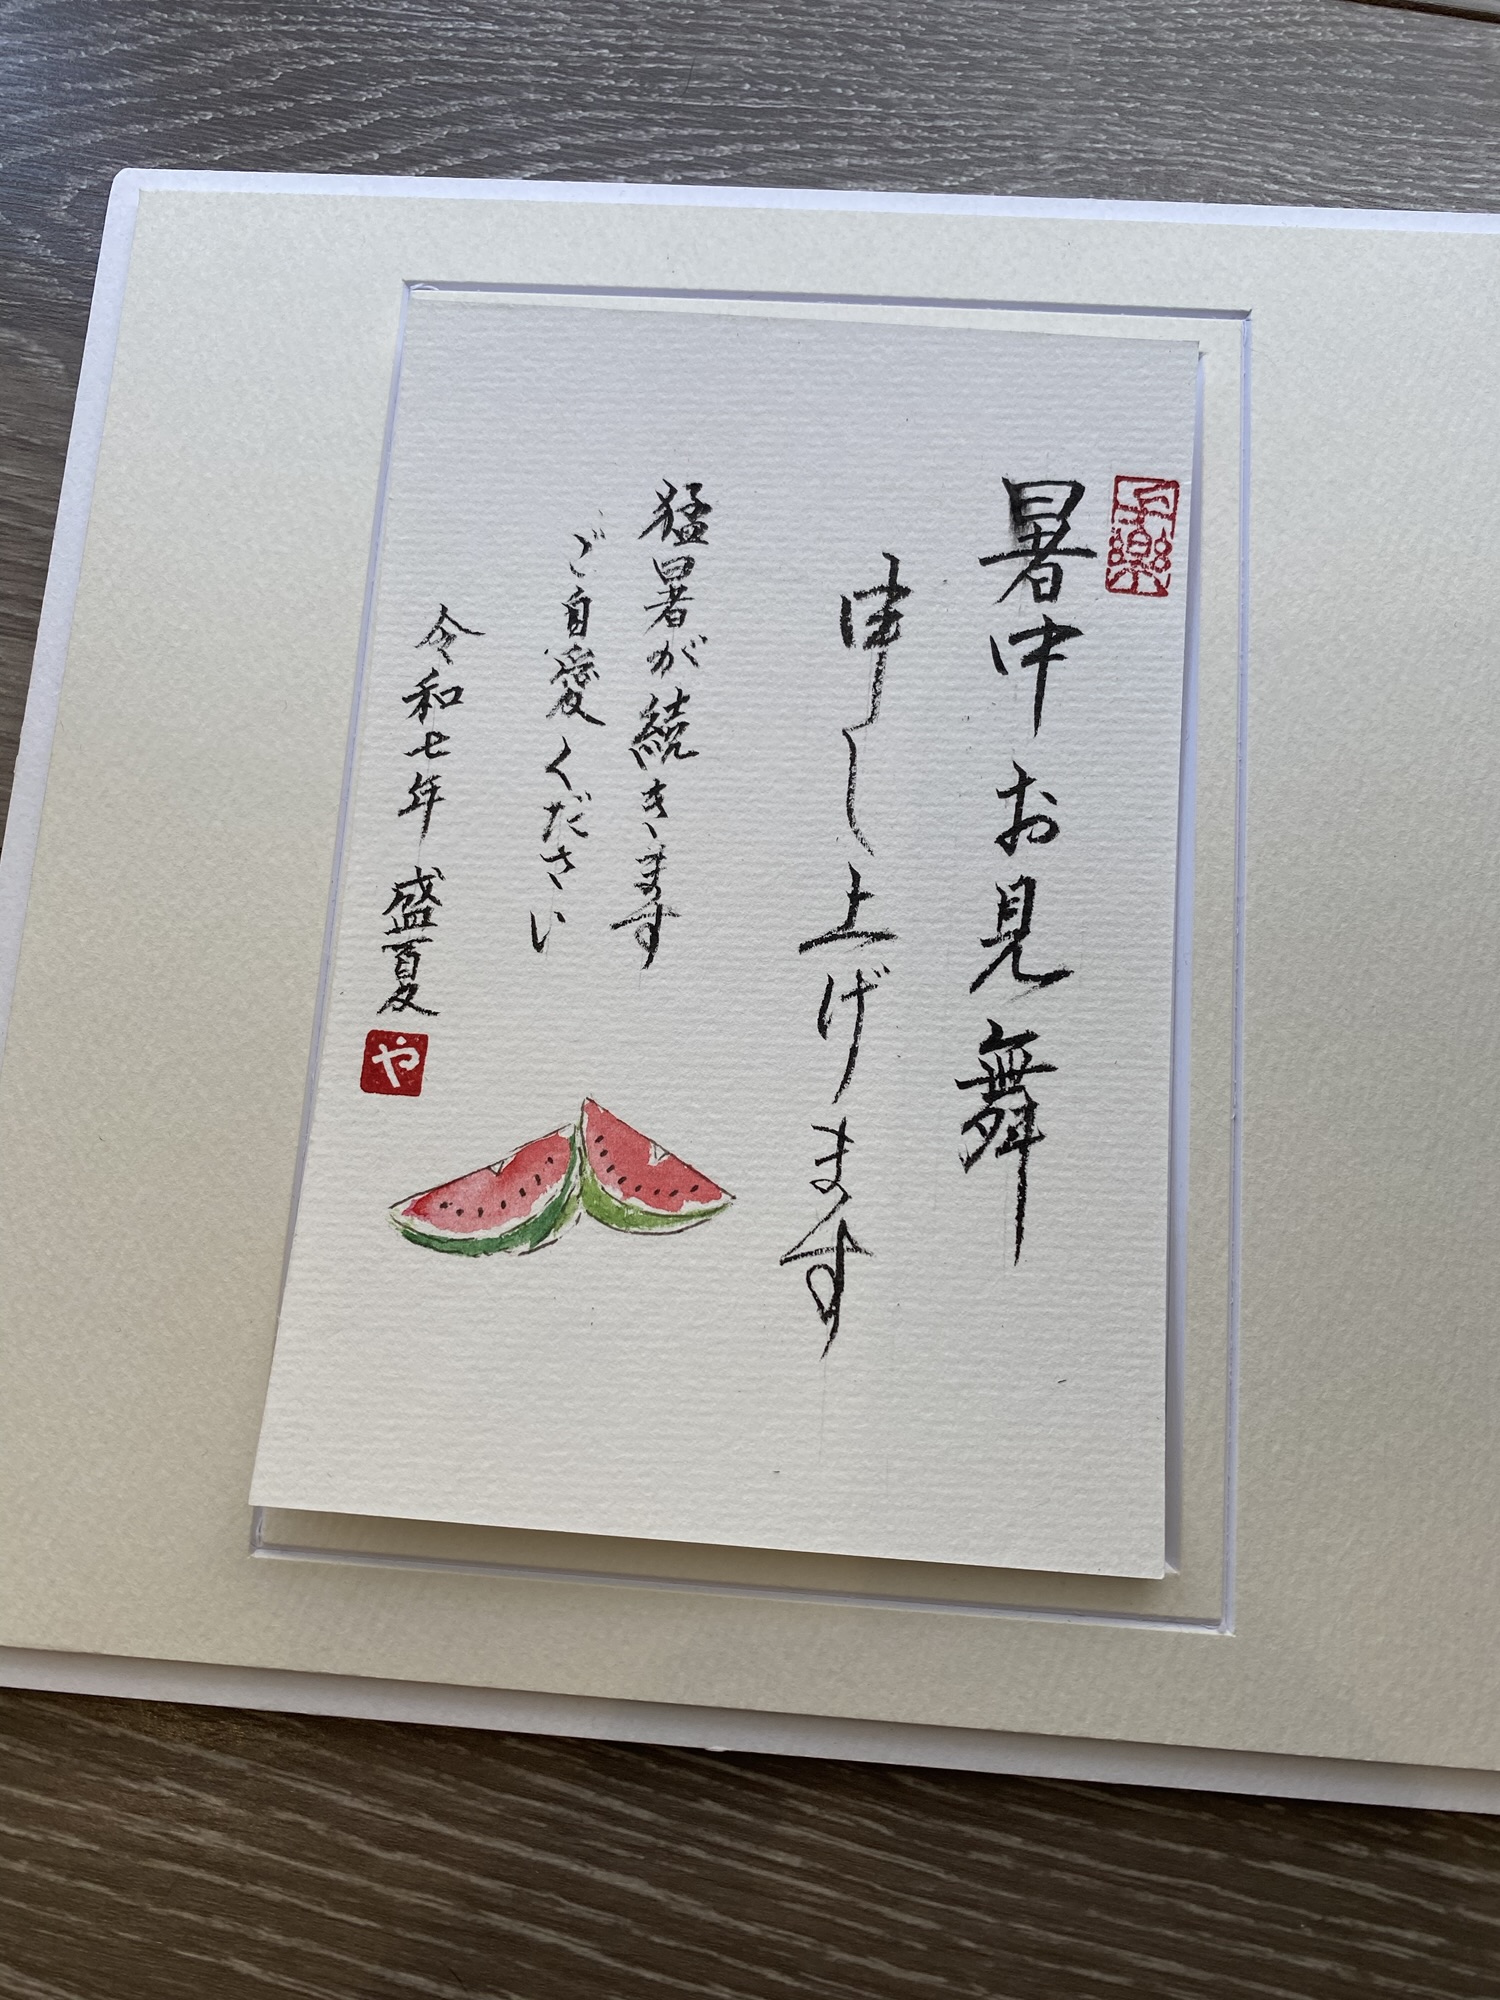 暑中お見舞
申し上げます
猛暑が続きます
ご自愛ください
令和七年 盛夏
や